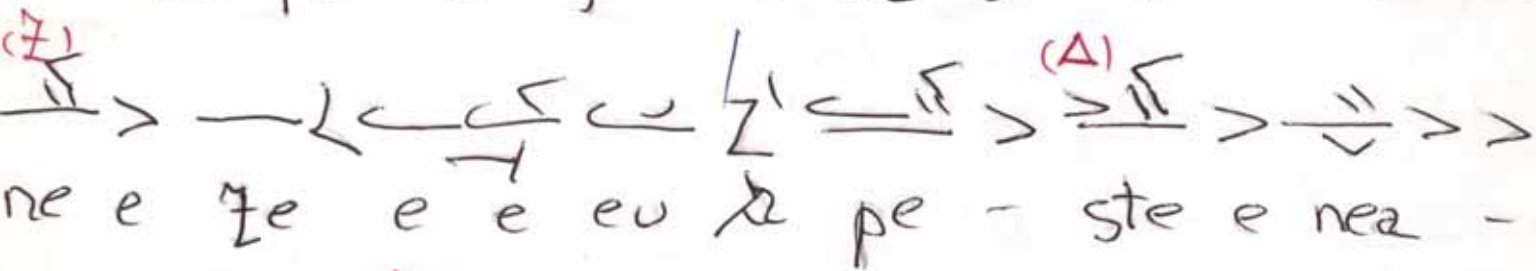 (Z) (Δ)
ne e ze e e eu pe - ste e nea -